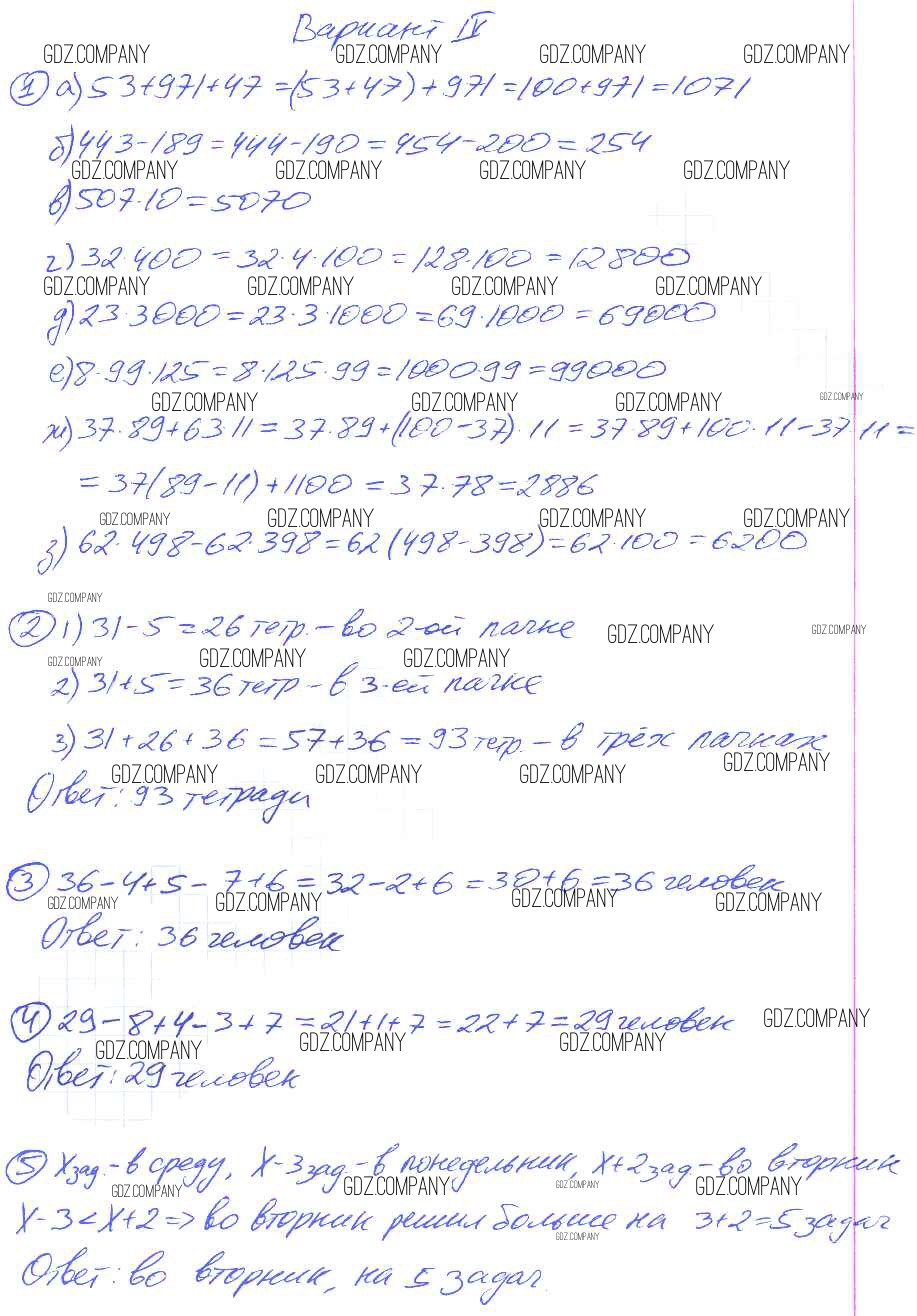 Вариант IV
GDZ.COMPANY GDZ.COMPANY GDZ.COMPANY GDZ.COMPANY
1 а) 53+971+47=(53+47)+971=100+971=1071
б) 443-189=444-190=454-200=254
GDZ.COMPANY GDZ.COMPANY GDZ.COMPANY GDZ.COMPANY
в) 507·10=5070
г) 32·400=32·4·100=128·100=12800
GDZ.COMPANY GDZ.COMPANY GDZ.COMPANY GDZ.COMPANY
д) 23·3000=23·3·1000=69·1000=69000
е) 8·99·125=8·125·99=100099=99000
GDZ.COMPANY GDZ.COMPANY GDZ.COMPANY GDZ.COMPANY
ж) 37·89+63·11=37·89+(100-37)·11=37·89+100·11-37·11=
=37(89-11)+1100=37·78=2886
GDZ.COMPANY GDZ.COMPANY GDZ.COMPANY GDZ.COMPANY
з) 62·498-62·398=62(498-398)=62·100=6200
GDZ.COMPANY
2 1) 31-5=26 тетр.-во 2-ой пачке GDZ.COMPANY GDZ.COMPANY
GDZ.COMPANY GDZ.COMPANY GDZ.COMPANY
2) 31+5=36 тетр-в 3-ей пачке
3) 31+26+36=57+36=93 тетр.-в трёх пачках
GDZ.COMPANY GDZ.COMPANY GDZ.COMPANY GDZ.COMPANY
Ответ: 93 тетради
3 36-4+5-7+6=32-2+6=30+6=36 человек
GDZ.COMPANY GDZ.COMPANY GDZ.COMPANY GDZ.COMPANY
Ответ: 36 человек
4 29-8+4-3+7=21+1+7=22+7=29 человек GDZ.COMPANY
GDZ.COMPANY GDZ.COMPANY GDZ.COMPANY
Ответ: 29 человек
5 X зад.-в среду, X-3 зад.-в понедельник, X+2 зад-во вторник
GDZ.COMPANY GDZ.COMPANY GDZ.COMPANY GDZ.COMPANY
X-3<X+2=>во вторник решил больше на 3+2=5 задач
GDZ.COMPANY
Ответ: во вторник, на 5 задач.